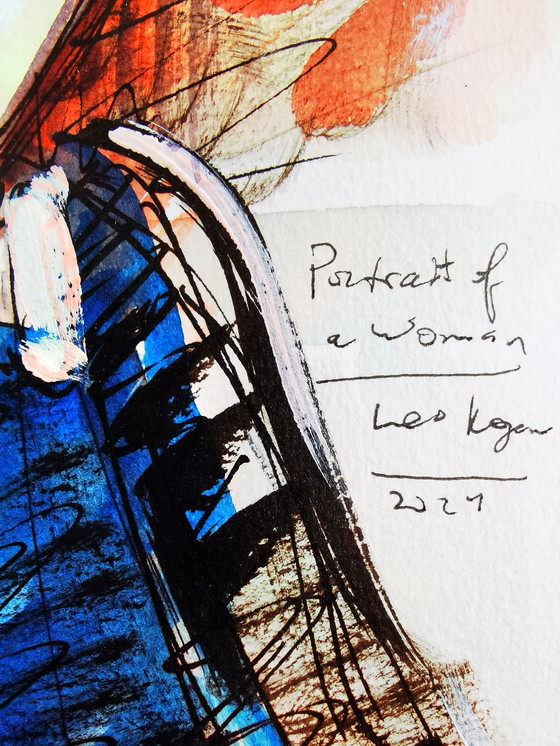 Portrait of
a Woman
Leo Kogan
2021